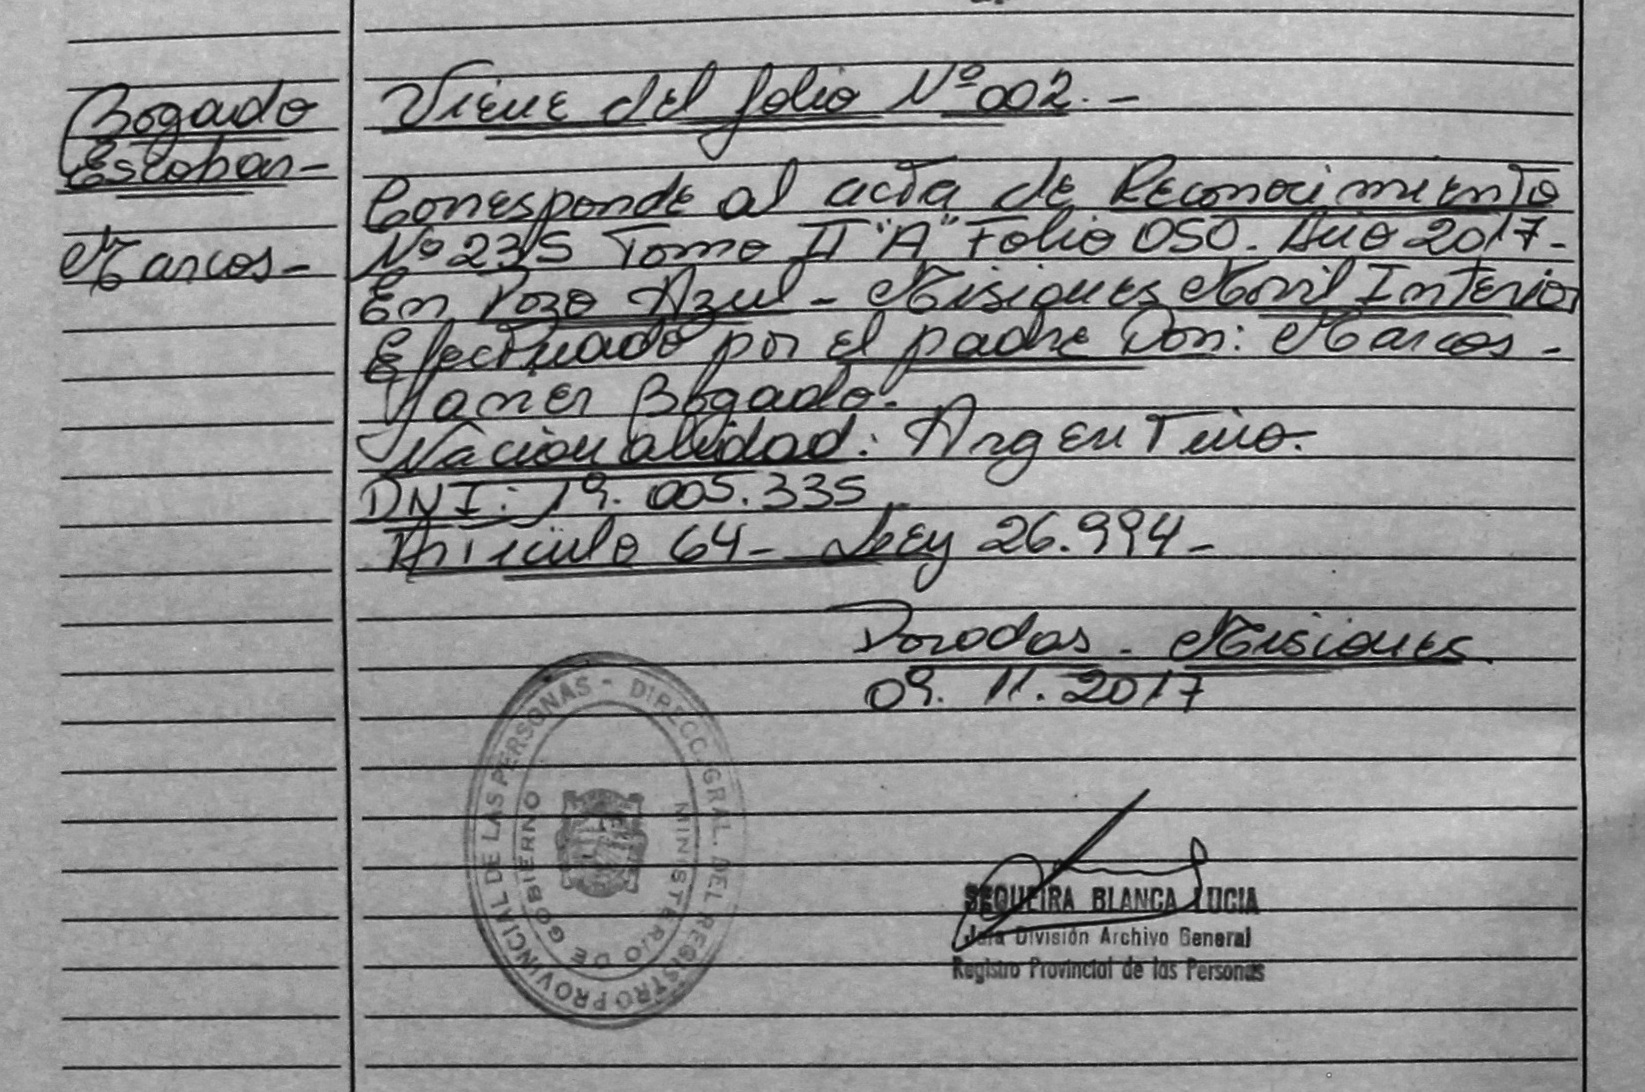 Bogado
Escobar-
Marcos-
Viene del folio Nº 002.-
Corresponde al acta de Reconocimiento
Nº 235 Tomo II "A" Folio 050. Año 2017-
En Pozo Azul - Misiones Movil Interior
Efectuado por el padre Don: Marcos -
Javier Bogado.
Nacionalidad: Argentino.
DNI: 19.005.335
Articulo 64- Ley 26.994-
Posadas - Misiones
09.11.2017
DIRECC. GRAL. DEL REGISTRO PROVINCIAL DE LAS PERSONAS -
MINISTERIO DE GOBIERNO
SEQUEIRA BLANCA LUCIA
Jefa División Archivo General
Registro Provincial de las Personas